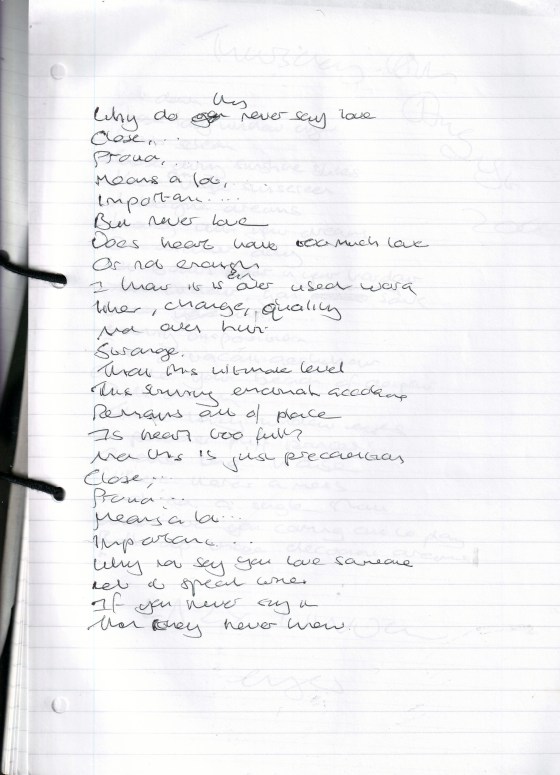 Why do they never say love
Close,...
Proud,..
Means a lot,...
Important....
But never love
Does heart have too much love
Or not enough
I know it is an over used word
, change, quality
Not over hurt
Strange.
That this ultimate level
This stunning accolade
Remains out of place
Is heart too full?
No this is just precaution
Close,...
Proud...
Means a lot...
Important....
Why not say you love someone
speak
If you never say it
Then they never know